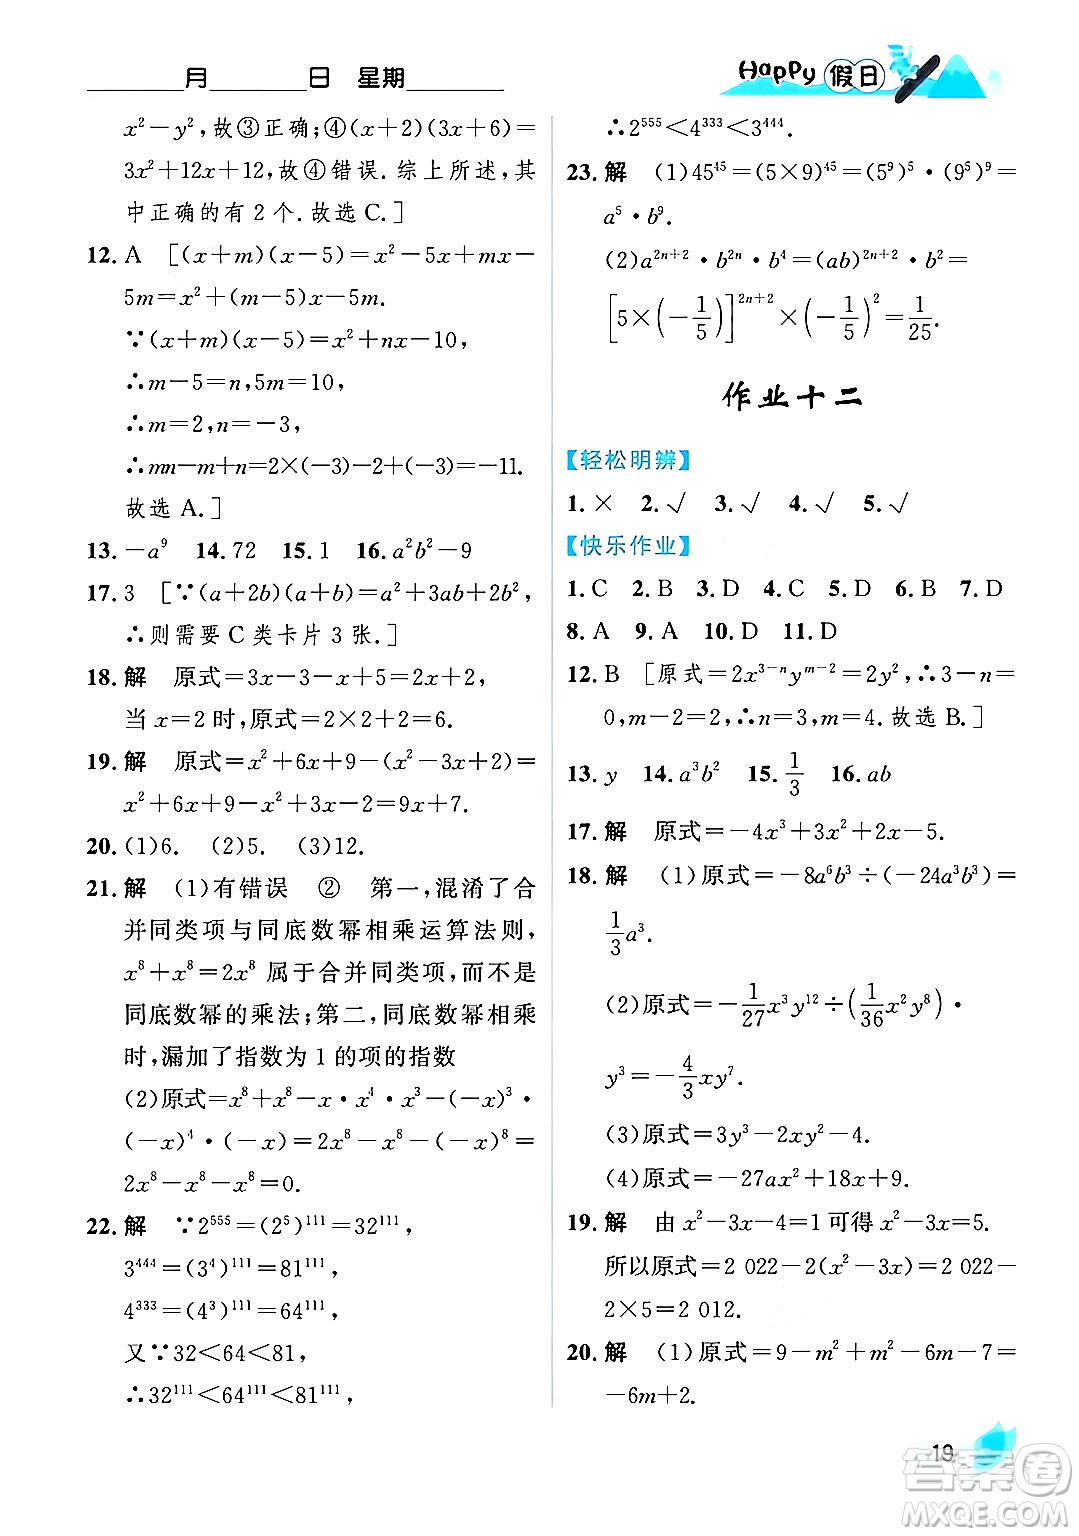 月 日 星期
Happy 假日
x²－y²,故③正确;④(x＋2)(3x＋6)＝
3x²＋12x＋12,故④错误.综上所述,其
中正确的有 2 个.故选 C.]
12. A [(x＋m)(x－5)＝x²－5x＋mx－
5m＝x²＋(m－5)x－5m.
∵(x＋m)(x－5)＝x²＋nx－10,
∴m－5＝n,5m＝10,
∴m＝2,n＝－3,
∴mn－m＋n＝2×(－3)－2＋(－3)＝－11.
故选 A.]
13. －a⁹ 14. 72 15. 1 16. a²b²－9
17. 3 [∵(a＋2b)(a＋b)＝a²＋3ab＋2b²,
∴则需要 C 类卡片 3 张.]
18. 解 原式＝3x－3－x＋5＝2x＋2,
当 x＝2 时,原式＝2×2＋2＝6.
19. 解 原式＝x²＋6x＋9－(x²－3x＋2)＝
x²＋6x＋9－x²＋3x－2＝9x＋7.
20. (1)6. (2)5. (3)12.
21. 解 (1)有错误 ② 第一,混淆了合
并同类项与同底数幂相乘运算法则,
x⁸＋x⁸＝2x⁸ 属于合并同类项,而不是
同底数幂的乘法;第二,同底数幂相乘
时,漏加了指数为 1 的项的指数
(2)原式＝x⁸＋x⁸－x·x⁴·x³－(－x)³·
(－x)⁴·(－x)＝2x⁸－x⁸－(－x)⁸＝
2x⁸－x⁸－x⁸＝0.
22. 解 ∵2⁵⁵⁵＝(2⁵)¹¹¹＝32¹¹¹,
3⁴⁴⁴＝(3⁴)¹¹¹＝81¹¹¹,
4³³³＝(4³)¹¹¹＝64¹¹¹,
又∵32＜64＜81,
∴32¹¹¹＜64¹¹¹＜81¹¹¹,
∴2⁵⁵⁵＜4³³³＜3⁴⁴⁴.
23. 解 (1)45⁴⁵＝(5×9)⁴⁵＝(5⁹)⁵·(9⁵)⁹＝
a⁵·b⁹.
(2)a²ⁿ⁺²·b²ⁿ·b⁴＝(ab)²ⁿ⁺²·b²＝
[5×(－1/5)]²ⁿ⁺²×(－1/5)²＝1/25.
作业十二
【轻松明辨】
1. × 2. √ 3. √ 4. √ 5. √
【快乐作业】
1. C 2. B 3. D 4. C 5. A 6. B 7. D
8. A 9. A 10. D 11. D
12. B [原式＝2x³⁻ⁿyᵐ⁻²＝2y²,∴3－n＝
0,m－2＝2,∴n＝3,m＝4.故选 B.]
13. y 14. a³b² 15. 1/3 16. ab
17. 解 原式＝－4x³＋3x²＋2x－5.
18. 解 (1)原式＝－8a⁶b³÷(－24a³b³)＝
1/3a³.
(2)原式＝－1/27x³y¹²÷(1/36x²y⁸)·
y³＝－4/3xy⁷.
(3)原式＝3y³－2xy²－4.
(4)原式＝－27ax²＋18x＋9.
19. 解 由 x²－3x－4＝1可得 x²－3x＝5.
所以原式＝2 022－2(x²－3x)＝2 022－
2×5＝2 012.
20. 解 (1)原式＝9－m²＋m²－6m－7＝
－6m＋2.
19
答案圈
MXQE.COM